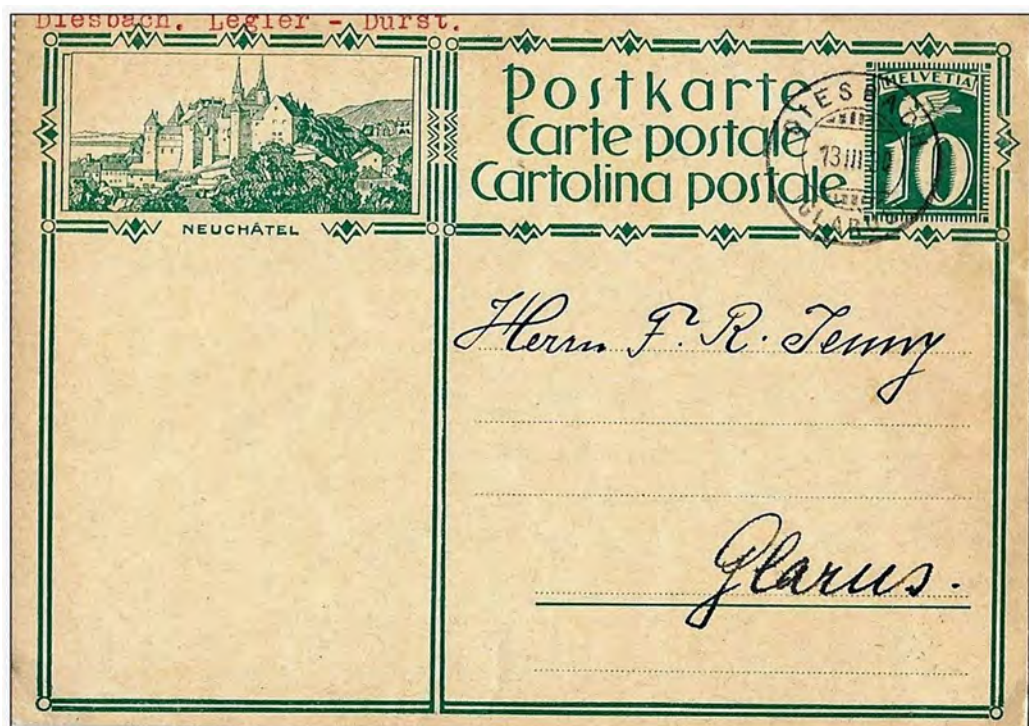 Diesbach. Legler - Durst.
Postkarte
Carte postale
Cartolina postale
HELVETIA
10
DIESBACH
13 III
GLARUS
NEUCHÂTEL
Herrn F. R. Jenny
Glarus.